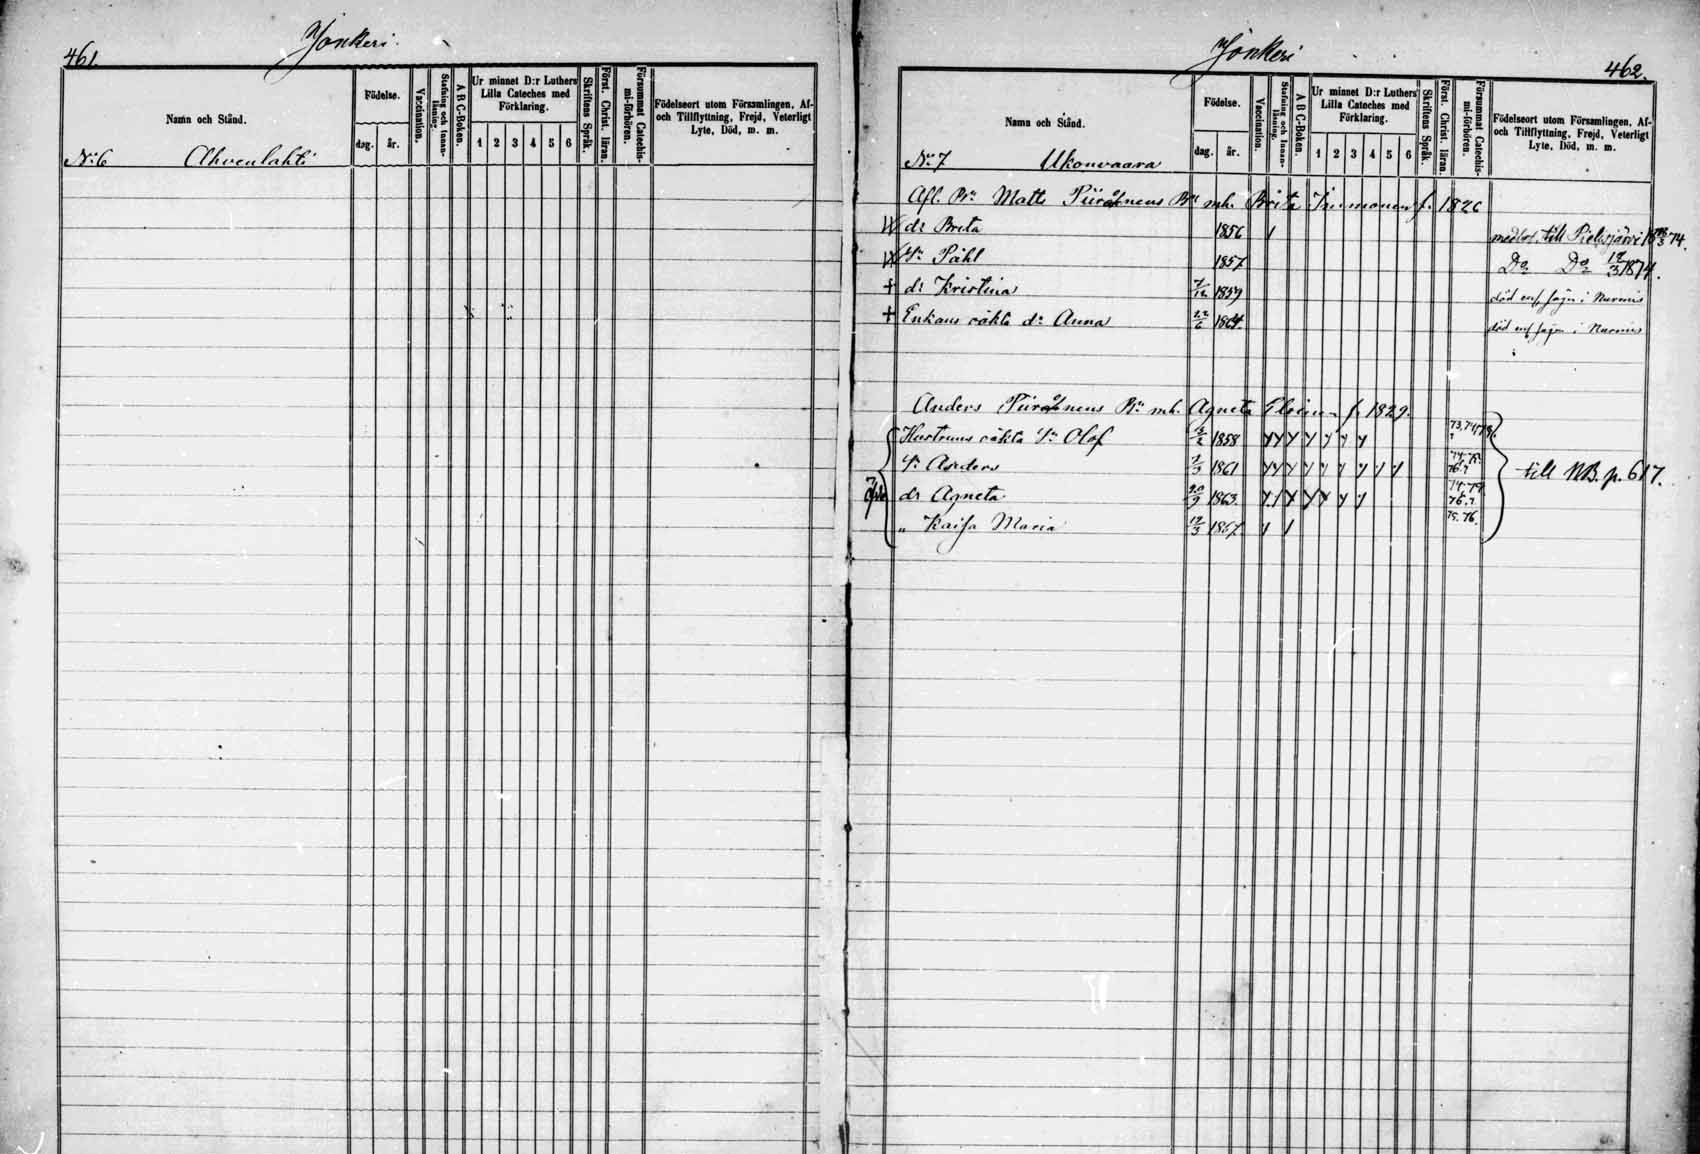 461.
Jonkeri.
Namn och Stånd.
Födelse.
dag.
år.
Vaccination.
Stafning och Innan-läsning.
A B C-Boken.
Ur minnet D:r Luthers
Lilla Cateches med
Förklaring.
1 2 3 4 5 6
Skriftens Språk.
Först. Christ. läran.
Försummat Catechis-mi-förhören.
Födelseort utom Församlingen, Af-
och Tillflyttning, Frejd, Veterligt
Lyte, Död, m. m.
No 6 Ahvenlahti
Jonkeri
462.
Namn och Stånd.
Födelse.
dag.
år.
Vaccination.
Stafning och Innan-läsning.
A B C-Boken.
Ur minnet D:r Luthers
Lilla Cateches med
Förklaring.
1 2 3 4 5 6
Skriftens Språk.
Först. Christ. läran.
Försummat Catechis-mi-förhören.
Födelseort utom Församlingen, Af-
och Tillflyttning, Frejd, Veterligt
Lyte, Död, m. m.
No 7 Ukonvaara
Afl. Bn Matts mh. Brita f. 1826
dr Brita 1856 till
Sn Påhl 1857 Do Do 12/3 1874.
+ dr Kristina 7/12 1859 död i Nurmis
+ Enkans oäkta dr Anna 22/6 1864. död i Nurmis
Anders mh. Agneta f. 1829.
Hustruns oäkta Sn Olof 1858
Sn Anders 1861
dr Agneta 20/9 1863.
„ Kaisa Maria 1867 75. 76.
till NB. p. 617.